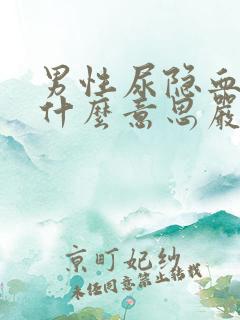 男性尿隐血
什麽意思嚴
京町妃紗
未经同意禁止转载